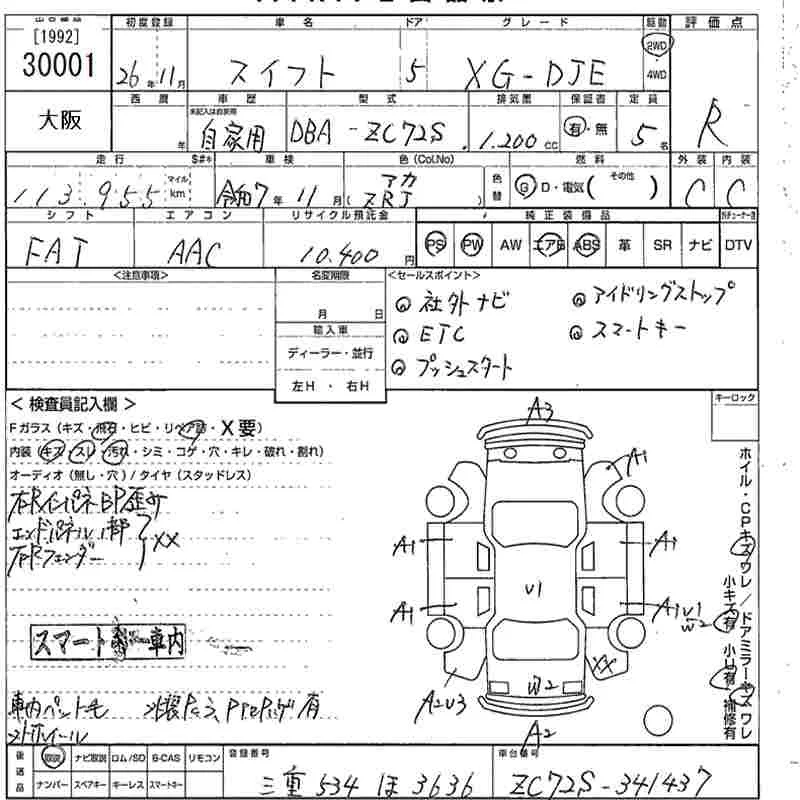 [1992]
30001
初度登録 車名 ドア グレード 駆動 評価点
26年11月 スイフト 5 XG-DJE 2WD 4WD R
大阪
西暦 車歴 型式 排気量 保証書 定員
年 未記入は自家用 自家用 DBA-ZC72S 1.200cc 有・無 5名
走行 S#* 車検 色(Col.No) 色替 燃料 その他 外装 内装
113,955 マイル km 令和7年11月 アカ (ZRJ) G D・電気( ) C C
シフト エアコン リサイクル預託金 純正装備品
FAT AAC 10.400円 PS PW AW エアB ABS 革 SR ナビ DTV
<注意事項> 名変期限 <セールスポイント>
月 日
輸入車
ディーラー・並行
左H・右H
社外ナビ アイドリングストップ
ETC スマートキー
プッシュスタート
キーロック
<検査員記入欄>
Fガラス(キズ・飛石・ヒビ・リペア跡・X要)
内装(キズ・スレ・汚れ・シミ・コゲ・穴・キレ・破れ・割れ)
オーディオ(無し・穴)/タイヤ(スタッドレス)
右Rインパネ BP歪サ
エンドパネル1部 XX
右Rフェンダー
スマート 車内
車内ペット毛
A3
A1
A1 A1
U1
A1 A1U1
W2
XX
A2U3 W2
A2
ホイル・CPキズワレ/ドアミラーキズワレ
小キズ有 小U有 補修有
後送品 取説 ナビ取説 ロム/SD B-CAS リモコン 登録番号 車台番号
ナンバー スペアキー キーレス スマートキー 三重 534 ほ 3636 ZC72S-341437